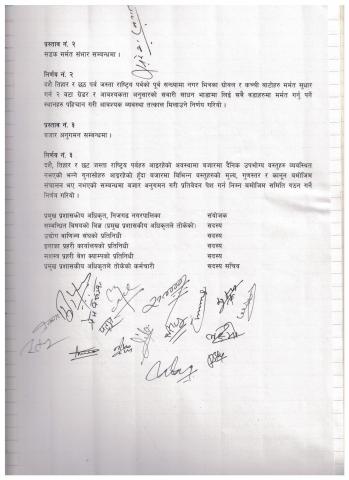 प्रस्ताव नं. २
सडक मर्मत संभार सम्बन्धमा ।
निर्णय नं. २
दशै, तिहार र छठ पर्व जस्ता राष्ट्रिय पर्वको पूर्व सन्ध्यामा नगर भित्रका ग्रावेल र कच्ची बाटोहरु मर्मत सुधार
गर्न २ वटा ग्रेडर र आवश्यकता अनुसारको सवारी साधन भाडामा लिई सबै वडाहरुमा मर्मत गर्नु पर्ने
स्थानहरु पहिचान गरी आवश्यक व्यवस्था तत्काल मिलाउने निर्णय गरियो ।
प्रस्ताव नं. ३
बजार अनुगमन सम्बन्धमा ।
निर्णय नं. ३
दशै, तिहार र छठ जस्ता राष्ट्रिय पर्वहरु आइरहेको अवस्थामा बजारमा दैनिक उपभोग्य वस्तुहरु व्यवस्थित
नभएको भन्ने गुनासोहरु आइरहेको हुँदा बजारमा विभिन्न वस्तुहरुको मुल्य, गुणस्तर र कानून बमोजिम
संचालन भए नभएको सम्बन्धमा बजार अनुगमन गरी प्रतिवेदन पेश गर्न निम्न बमोजिम समिति गठन गर्ने
निर्णय गरियो ।
प्रमुख प्रशासकीय अधिकृत, निजगढ नगरपालिका संयोजक
सम्बन्धित विषयको विज्ञ (प्रमुख प्रशासकीय अधिकृतले तोकेको) सदस्य
उद्योग वाणिज्य संघको प्रतिनिधी सदस्य
इलाका प्रहरी कार्यालयको प्रतिनिधी सदस्य
सशस्त्र प्रहरी वेश क्याम्पको प्रतिनिधी सदस्य
प्रमुख प्रशासकीय अधिकृतले तोकेको कर्मचारी सदस्य सचिव